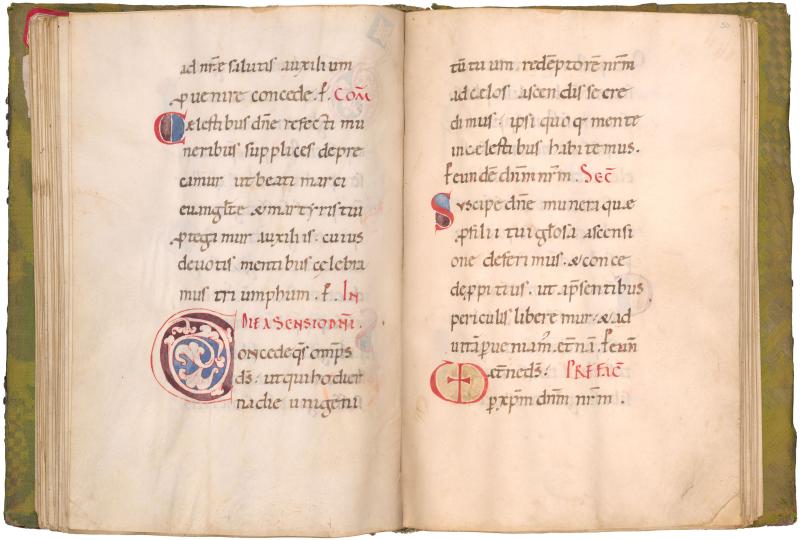 ad nr̄e salutis auxilium
ꝑuenire concede. ꝑ. COM̄
Cælestibus dn̄e refecti mu
neribus supplices depre
camur ut beati marci
euangl̄te & martyris tui
ꝓtegimur auxiliis. cuius
deuotis mentibus cęlebra
mus triumphum. ꝑ. IN
DIE ASENSIO DN̄I.
Concede qs̄ omp̄s
ds̄. ut qui hodier
na die unigeni
50
tū tuum. redēptorē nr̄m
ad cælos ascendisse cre
dimus. ipsi quoq; mente
in cælestibus habitemus.
ꝑ eundē dn̄m nr̄m. SEC̄
Suscipe dn̄e munera quæ
ꝓ filii tui gl̄osa ascensi
one deferimus. & conce
de ꝓpitius. ut a p̄sentibus
periculis liberemur. & ad
uitā ꝑueniam'. et̄nā. ꝑ eun̄
et̄ne ds̄. PREFAC̄
ꝑ xp̄m dn̄m nr̄m.